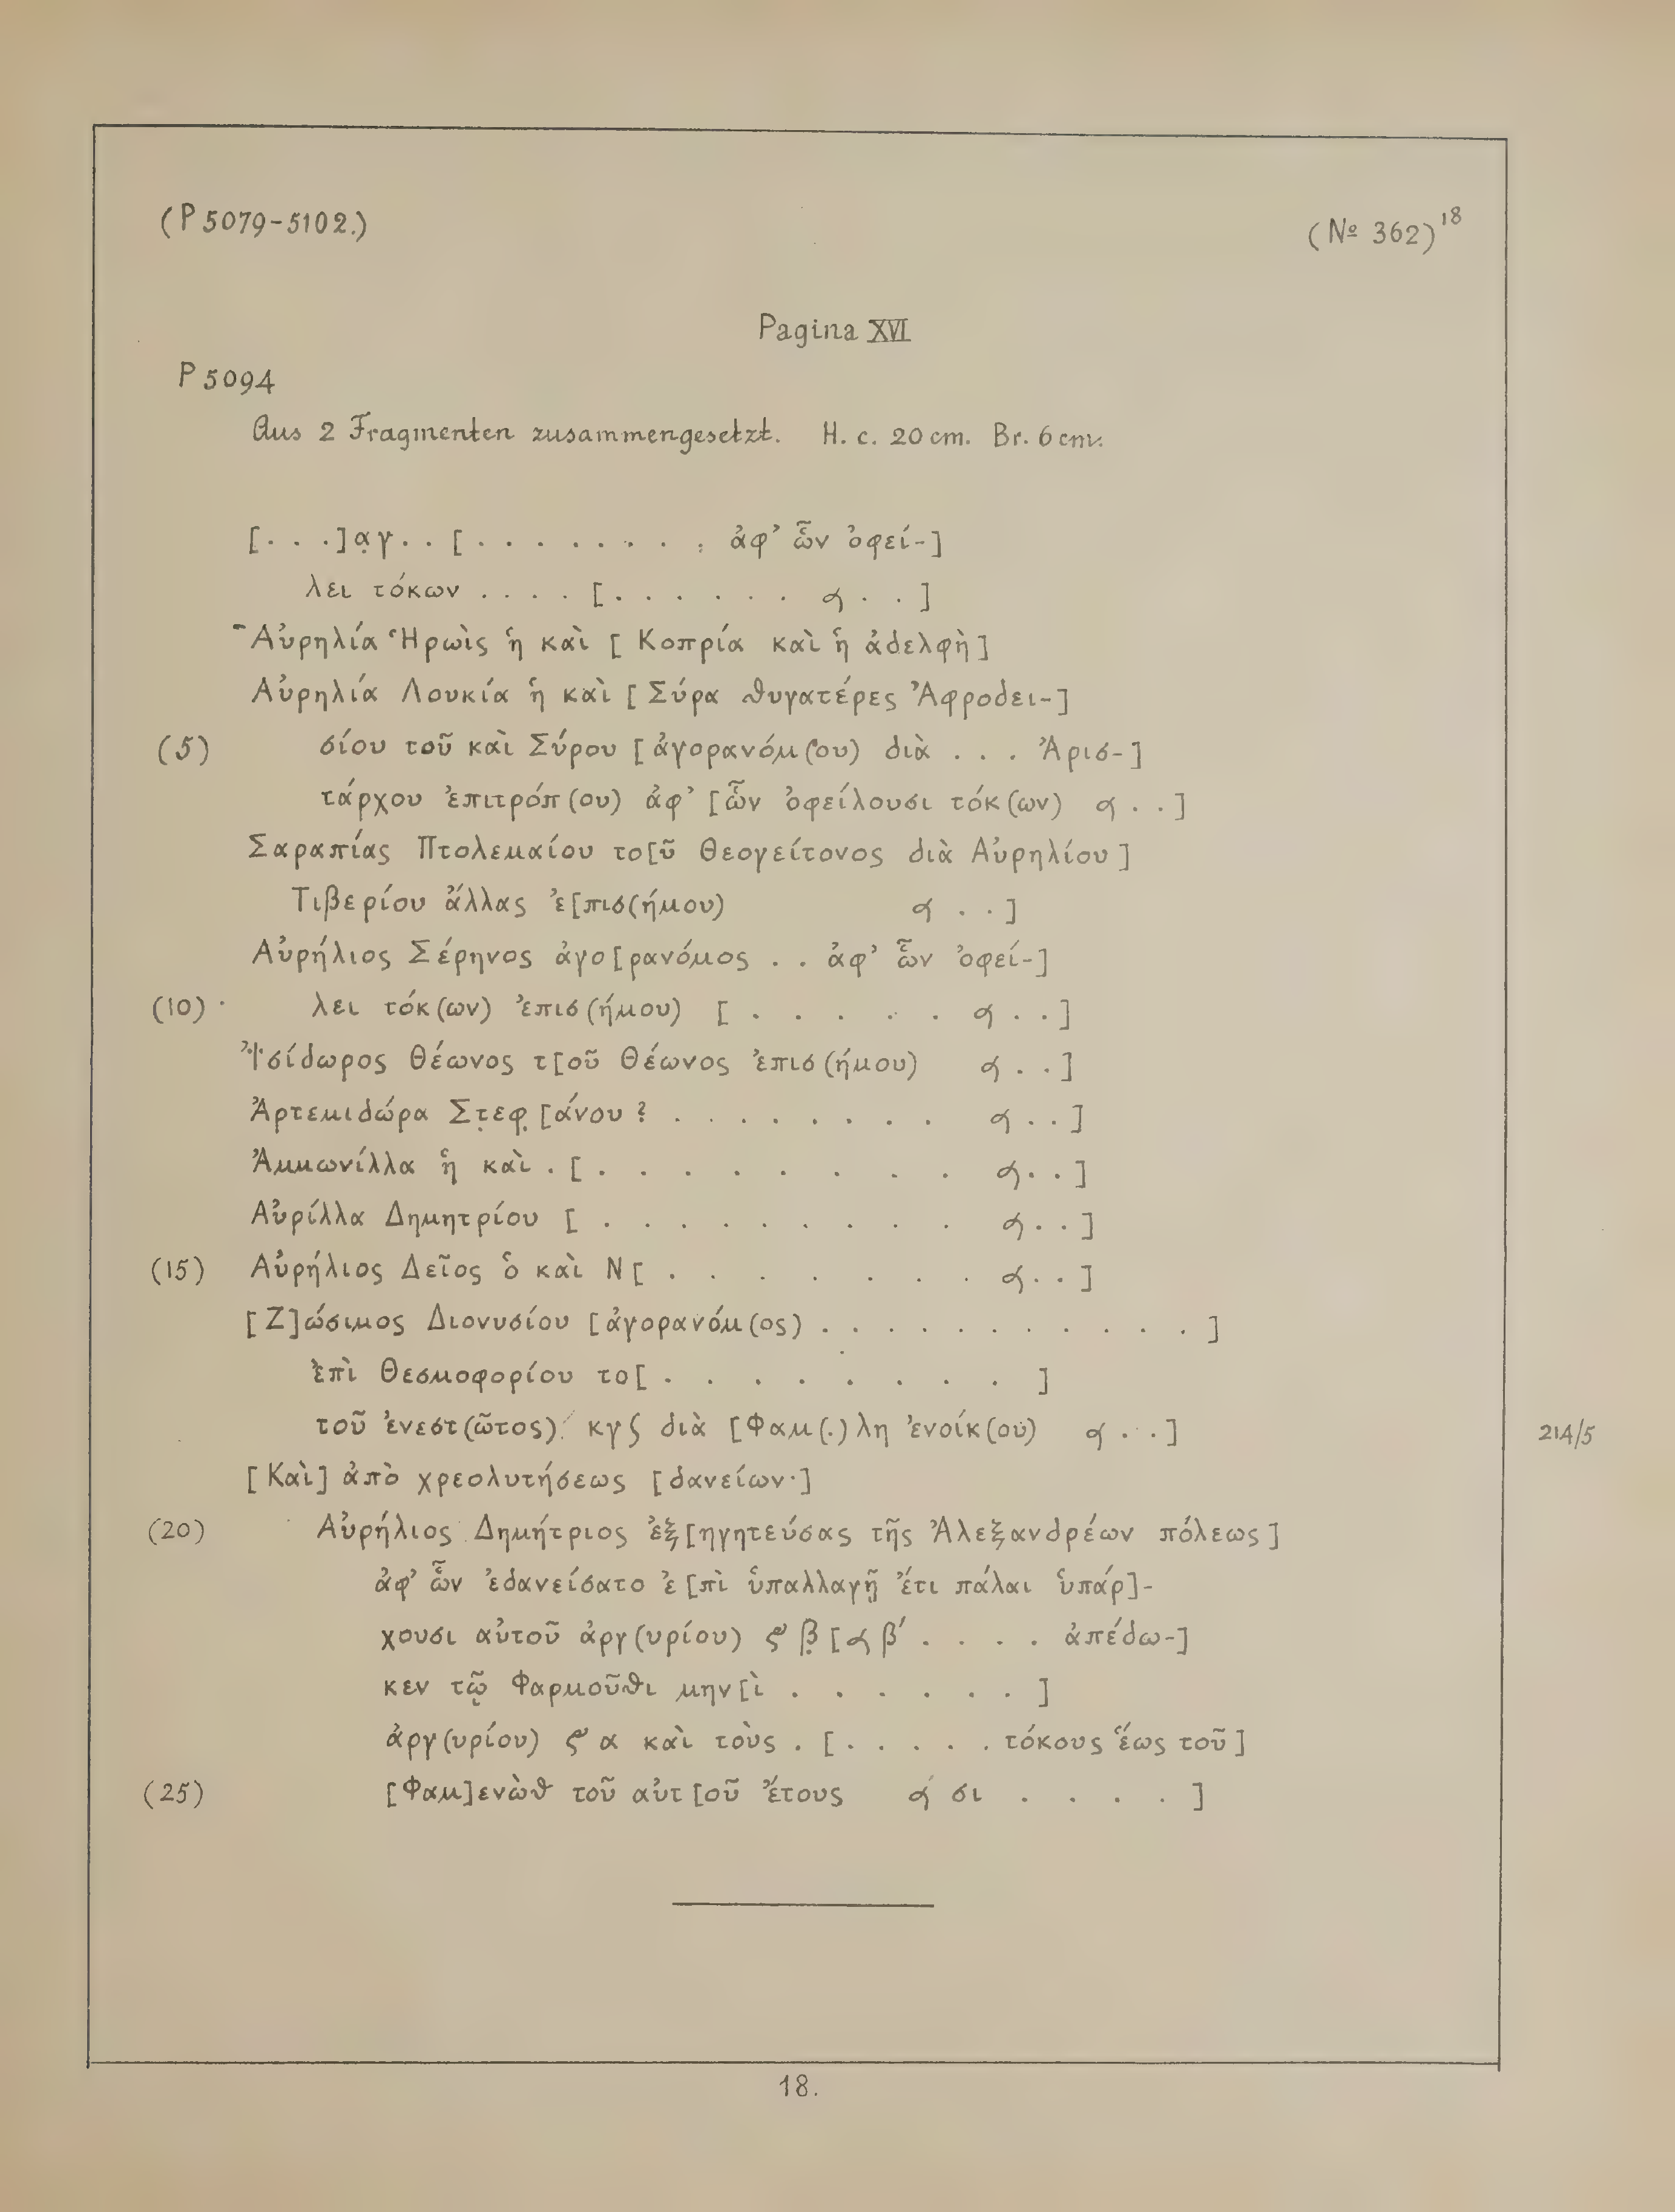 (P 5079-5102.) (№ 362)¹⁸
Pagina XVI
P 5094
Aus 2 Fragmenten zusammengesetzt. H. c. 20 cm. Br. 6 cm.
[. . .]α̣γ . . [ . . . . . . . . ἀφ’ ὧν ὀφεί-]
λει τόκων . . . . [. . . . . . . 𐅻 . . ]
¯Αὐρηλία Ἡρωὶς ἡ καὶ [ Κοπρία καὶ ἡ ἀδελφὴ ]
Αὐρηλία Λουκία ἡ καὶ [ Σύρα θυγατέρες Ἀφροδει-]
(5) σίου τοῦ καὶ Σύρου [ ἀγορανόμ(ου) διὰ . . . Ἀρισ-]
τάρχου ἐπιτρόπ(ου) ἀφ’ [ὧν ὀφείλουσι τόκ(ων) 𐅻 . . ]
Σαραπίας Πτολεμαίου το[ῦ Θεογείτονος διὰ Αὐρηλίου ]
Τιβερίου ἄλλας ἐ[πισ(ήμου) 𐅻 . . ]
Αὐρήλιος Σέρηνος ἀγο[ρανόμος . . ἀφ’ ὧν ὀφεί-]
(10) λει τόκ(ων) ἐπισ(ήμου) [ . . . . . 𐅻 . . ]
Ἰσίδωρος Θέωνος τ[οῦ Θέωνος ἐπισ(ήμου) 𐅻 . . ]
Ἀρτεμιδώρα Στ̣εφ̣ [άνου ? . . . . . . . . 𐅻 . . ]
Ἀμμωνίλλα ἡ καὶ . [ . . . . . . . . 𐅻 . . ]
Αὐρίλλα Δημητρίου [ . . . . . . . . . 𐅻 . . ]
(15) Αὐρήλιος Δεῖος ὁ καὶ Ν[ . . . . . . . 𐅻 . . ]
[ Ζ]ώσιμος Διονυσίου [ἀγορανόμ(ος) . . . . . . . . . . . ]
ἐπὶ Θεσμοφορίου το[ . . . . . . . . ]
τοῦ ἐνεστ(ῶτος) κγϛ διὰ [Φαμ(.) λη ἐνοίκ(ου) 𐅻 . . ] 214/5
[ Καὶ] ἀπὸ χρεολυτήσεως [ δανείων·]
(20) Αὐρήλιος Δημήτριος ἐξ[ηγητεύσας τῆς Ἀλεξανδρέων πόλεως ]
ἀφ’ ὧν ἐδανείσατο ἐ[πὶ ὑπαλλαγῇ ἔτι πάλαι ὑπάρ]-
χουσι αὐτοῦ ἀργ(υρίου) ϟ β̣ [𐅻 β′ . . . . ἀπέδω-]
κεν τῷ Φαρμοῦθι μην[ὶ . . . . . . ]
ἀργ(υρίου) ϟ α καὶ τοὺς . [ . . . . . τόκους ἕως τοῦ ]
(25) [Φαμ]ενὼθ τοῦ αὐτ[οῦ ἔτους 𐅻 σι . . . . ]
18.